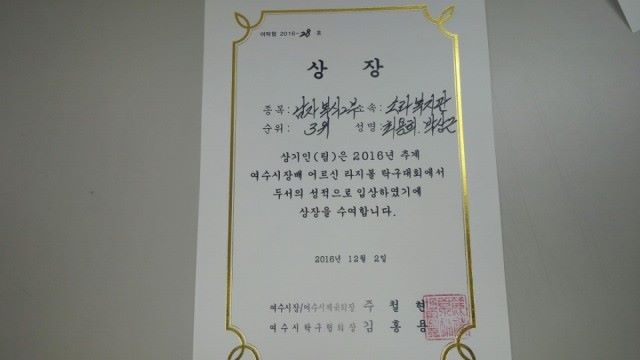 여탁협 2016-28 호
상 장
종목: 남자복식2부 소속: 소라복지관
순위: 3위 성명: 최용희. 박상근
상기인(팀)은 2016년 추계
여수시장배 어르신 라지볼 탁구대회에서
두서의 성적으로 입상하였기에
상장을 수여합니다.
2016년 12월 2일
여수시장/여수시체육회장 주 철 현
여수시탁구협회장 김 홍 용